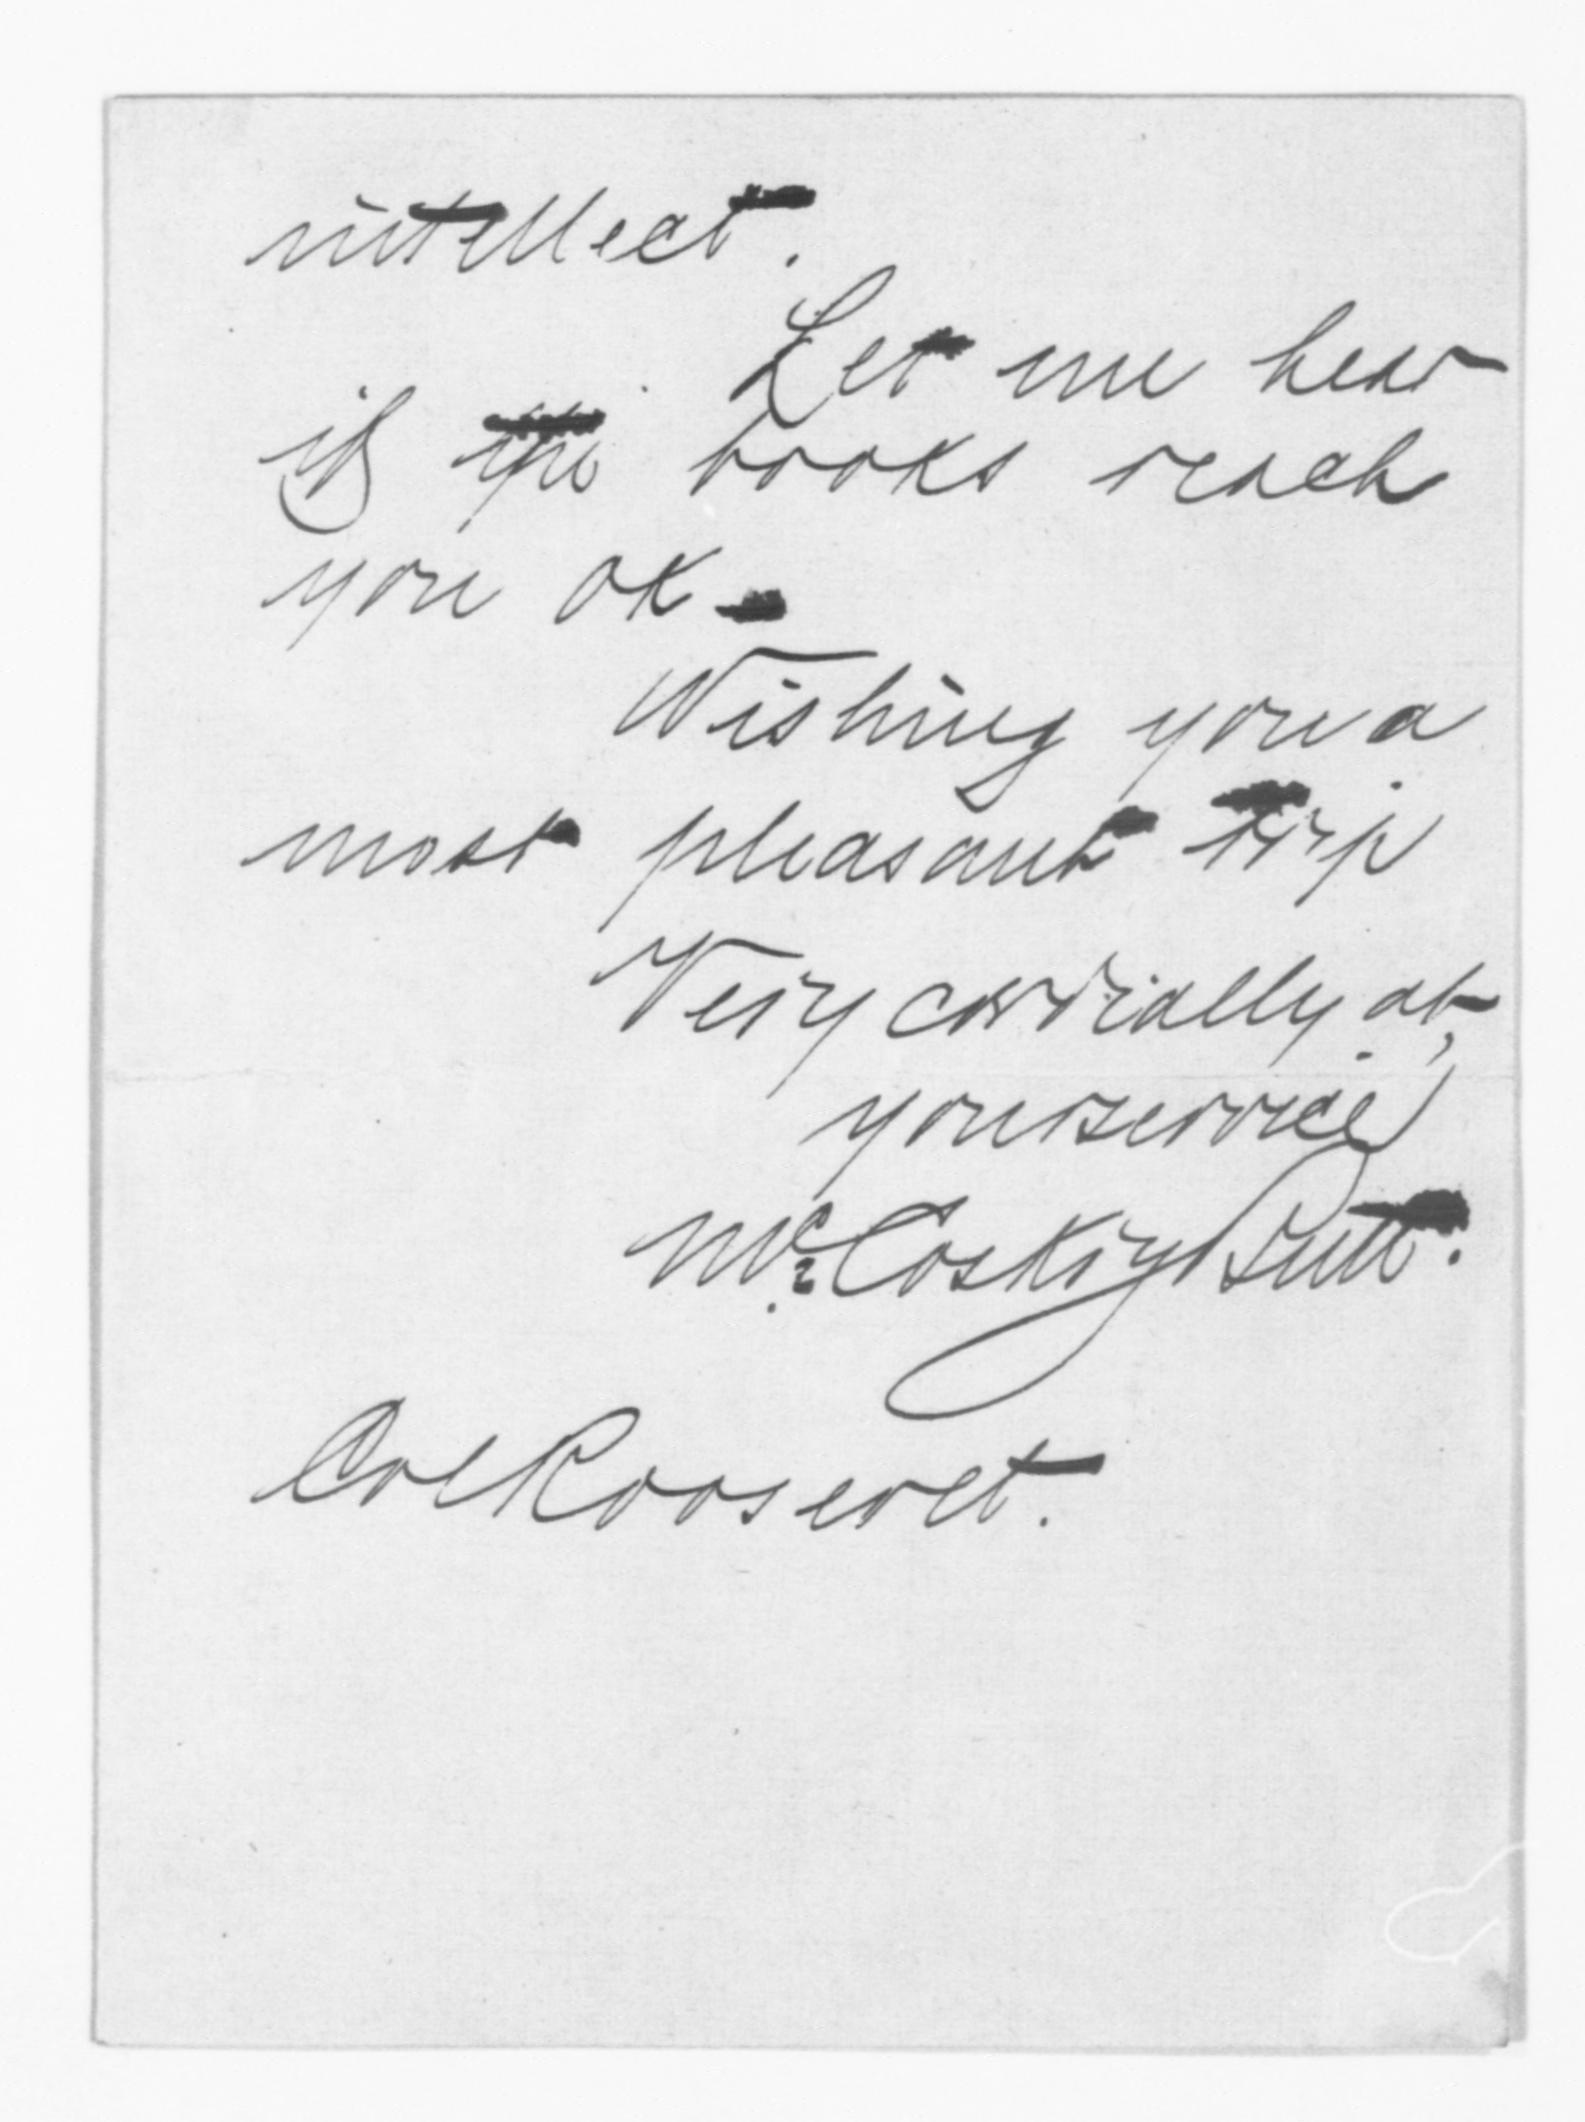 intellect.
Let me hear
if the books reach
you OK -
Wishing you a
most pleasant trip
Very cordially at,
your service
McCoskry Butt.
Col Roosevelt.